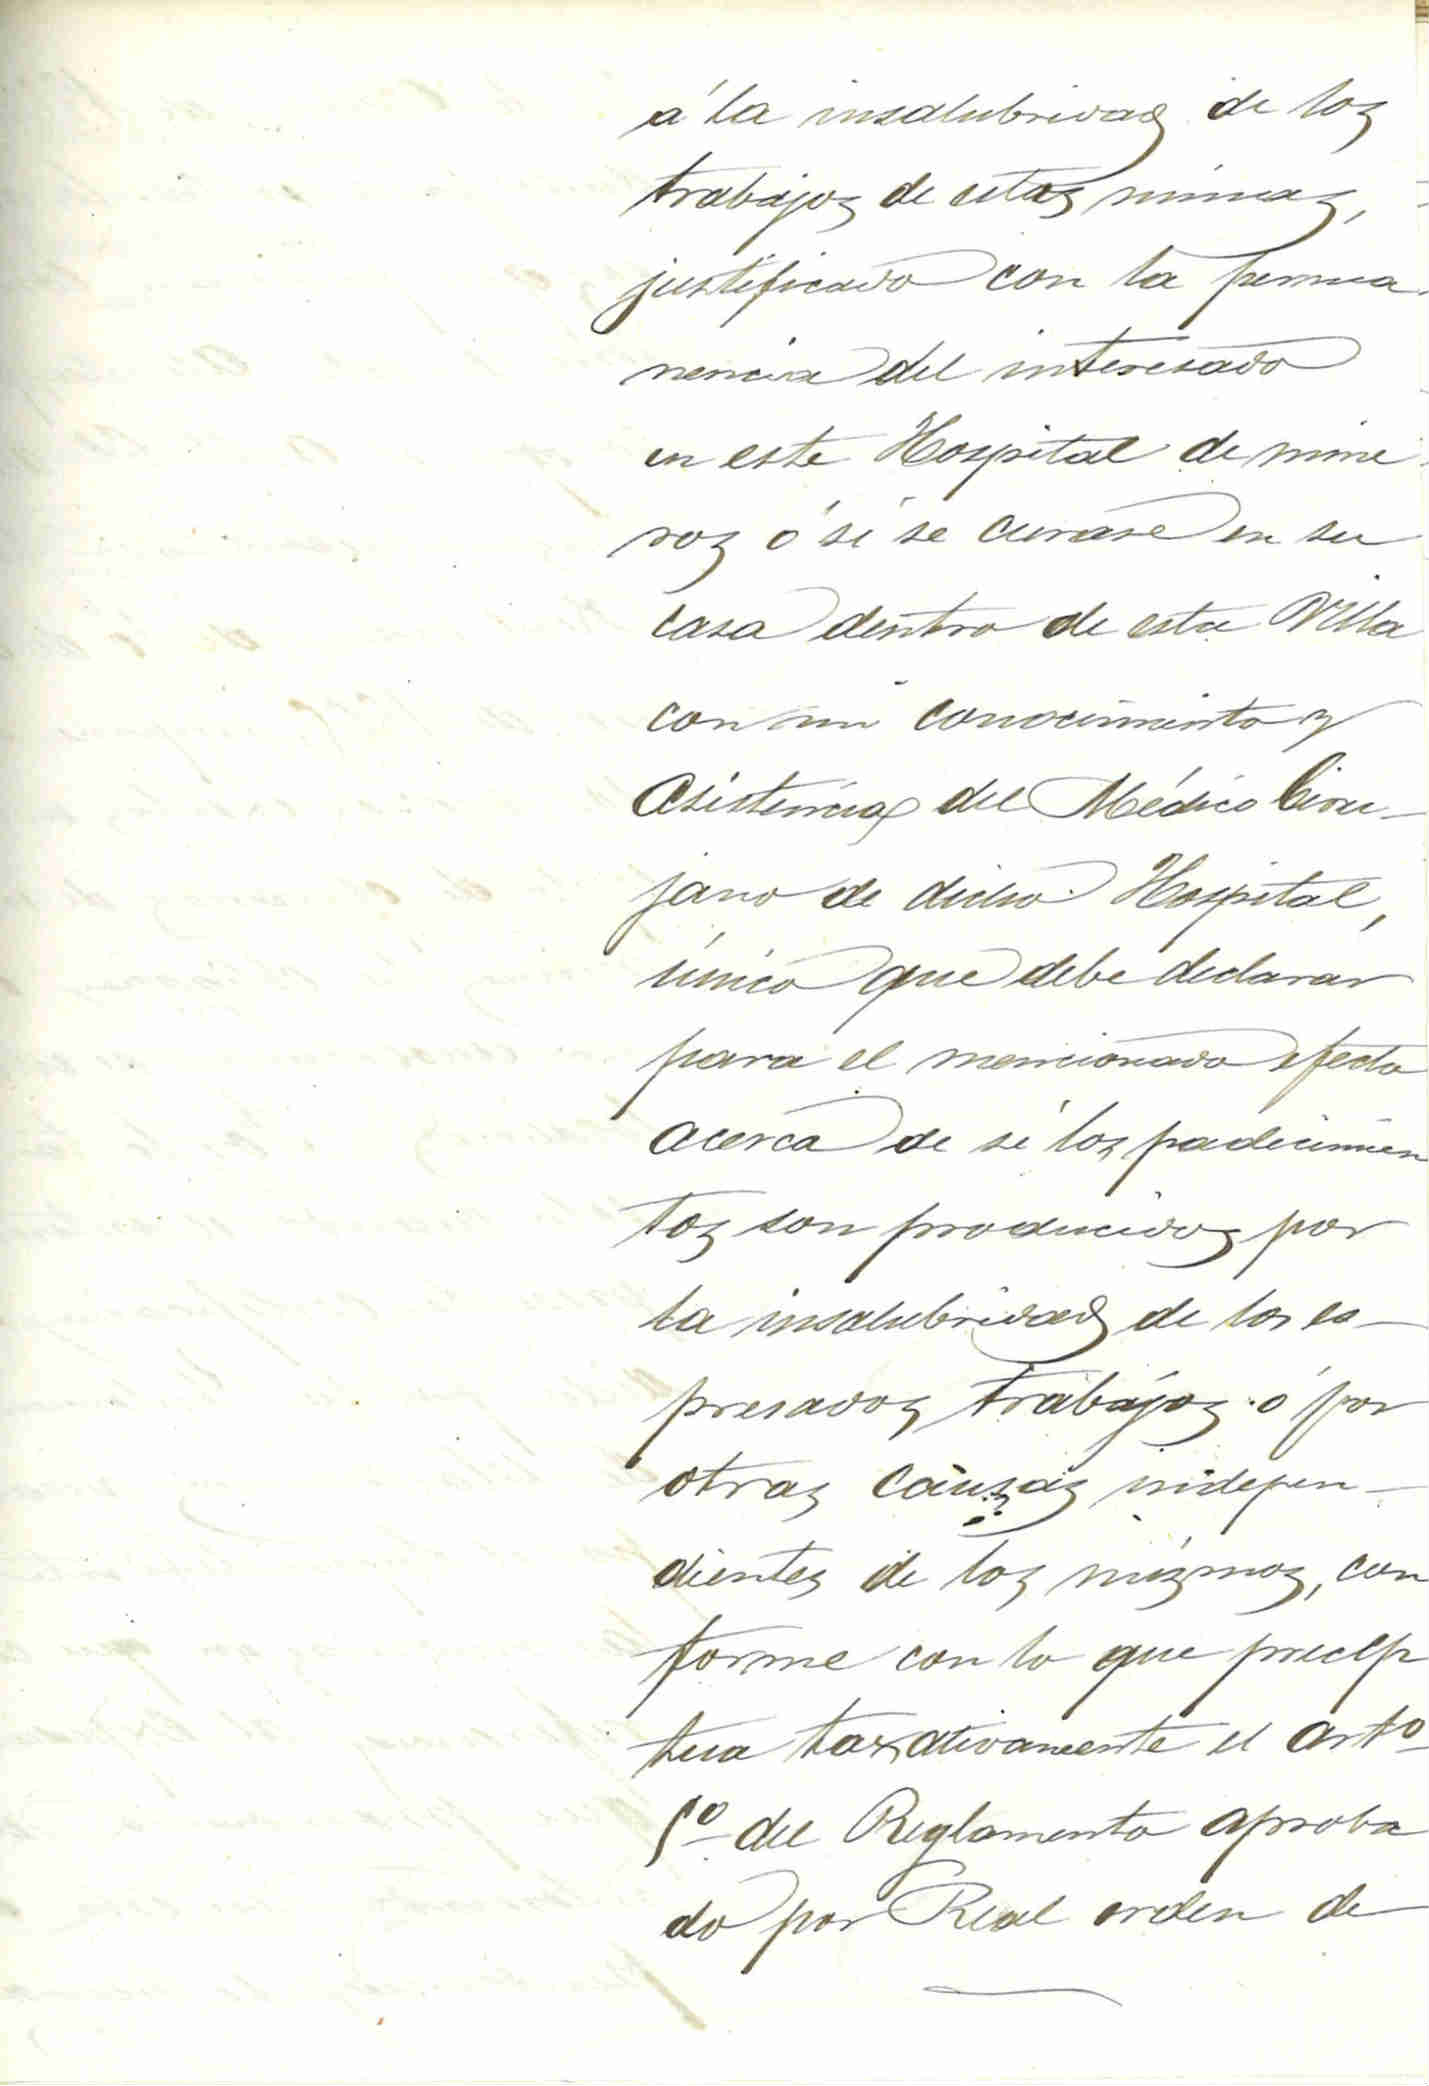 á la insalubridad de los
trabajos de estas minas,
justificado con la perma-
nencia del interesado
en este Hospital de mine-
ros ó si se curase en su
casa dentro de esta Villa
con mi conocimiento y
asistencia del Médico Ciru-
jano de dicho Hospital,
único que debe declarar
para el mencionado efecto
acerca de si los padecimien
tos son producidos por
la insalubridad de los es-
presados trabajos ó por
otras causas indepen-
dientes de los mismos, con
forme con lo que precep
tua taxativamente el arto
5º del Reglamento aproba
do por Real orden de